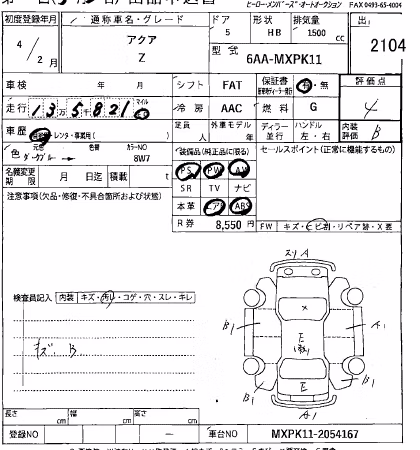 ヒーローメンバーズ・オートオークション FAX 0493-65-4004
初度登録年月 通称車名・グレード ドア 形状 排気量 出
4/2月 アクア 5 HB 1500 cc 2104
Z 型式 6AA-MXPK11
車検 年 月 シフト FAT 保証書 有・無 評価点
走行 135821 マイル 冷房 AAC 燃料 G 4
車歴 自家用・レンタ・事業用( ) 定員 人 外車モデル 年 ディーラー 並行 ハンドル 左・右 内装評価 B
色 元色 ダークブルー 色替 カラーNO 8W7 装備品(純正品に限る) セールスポイント(正常に機能するもの)
名義変更期限 月 日迄 積載 t PS PW AW
注意事項(欠品・修復・不具合箇所および状態) SR TV ナビ
本革 エアB ABS
R券 8,550 円 FW キズ・ヒビ割・リペア跡・X要
スリA
検査員記入 内装 キズ・汚れ・コゲ・穴・スレ・キレ
B1 A1
キズ B
E
B1 E B1
A1
長さ cm 幅 cm 高さ cm
登録NO 車台NO MXPK11-2054167